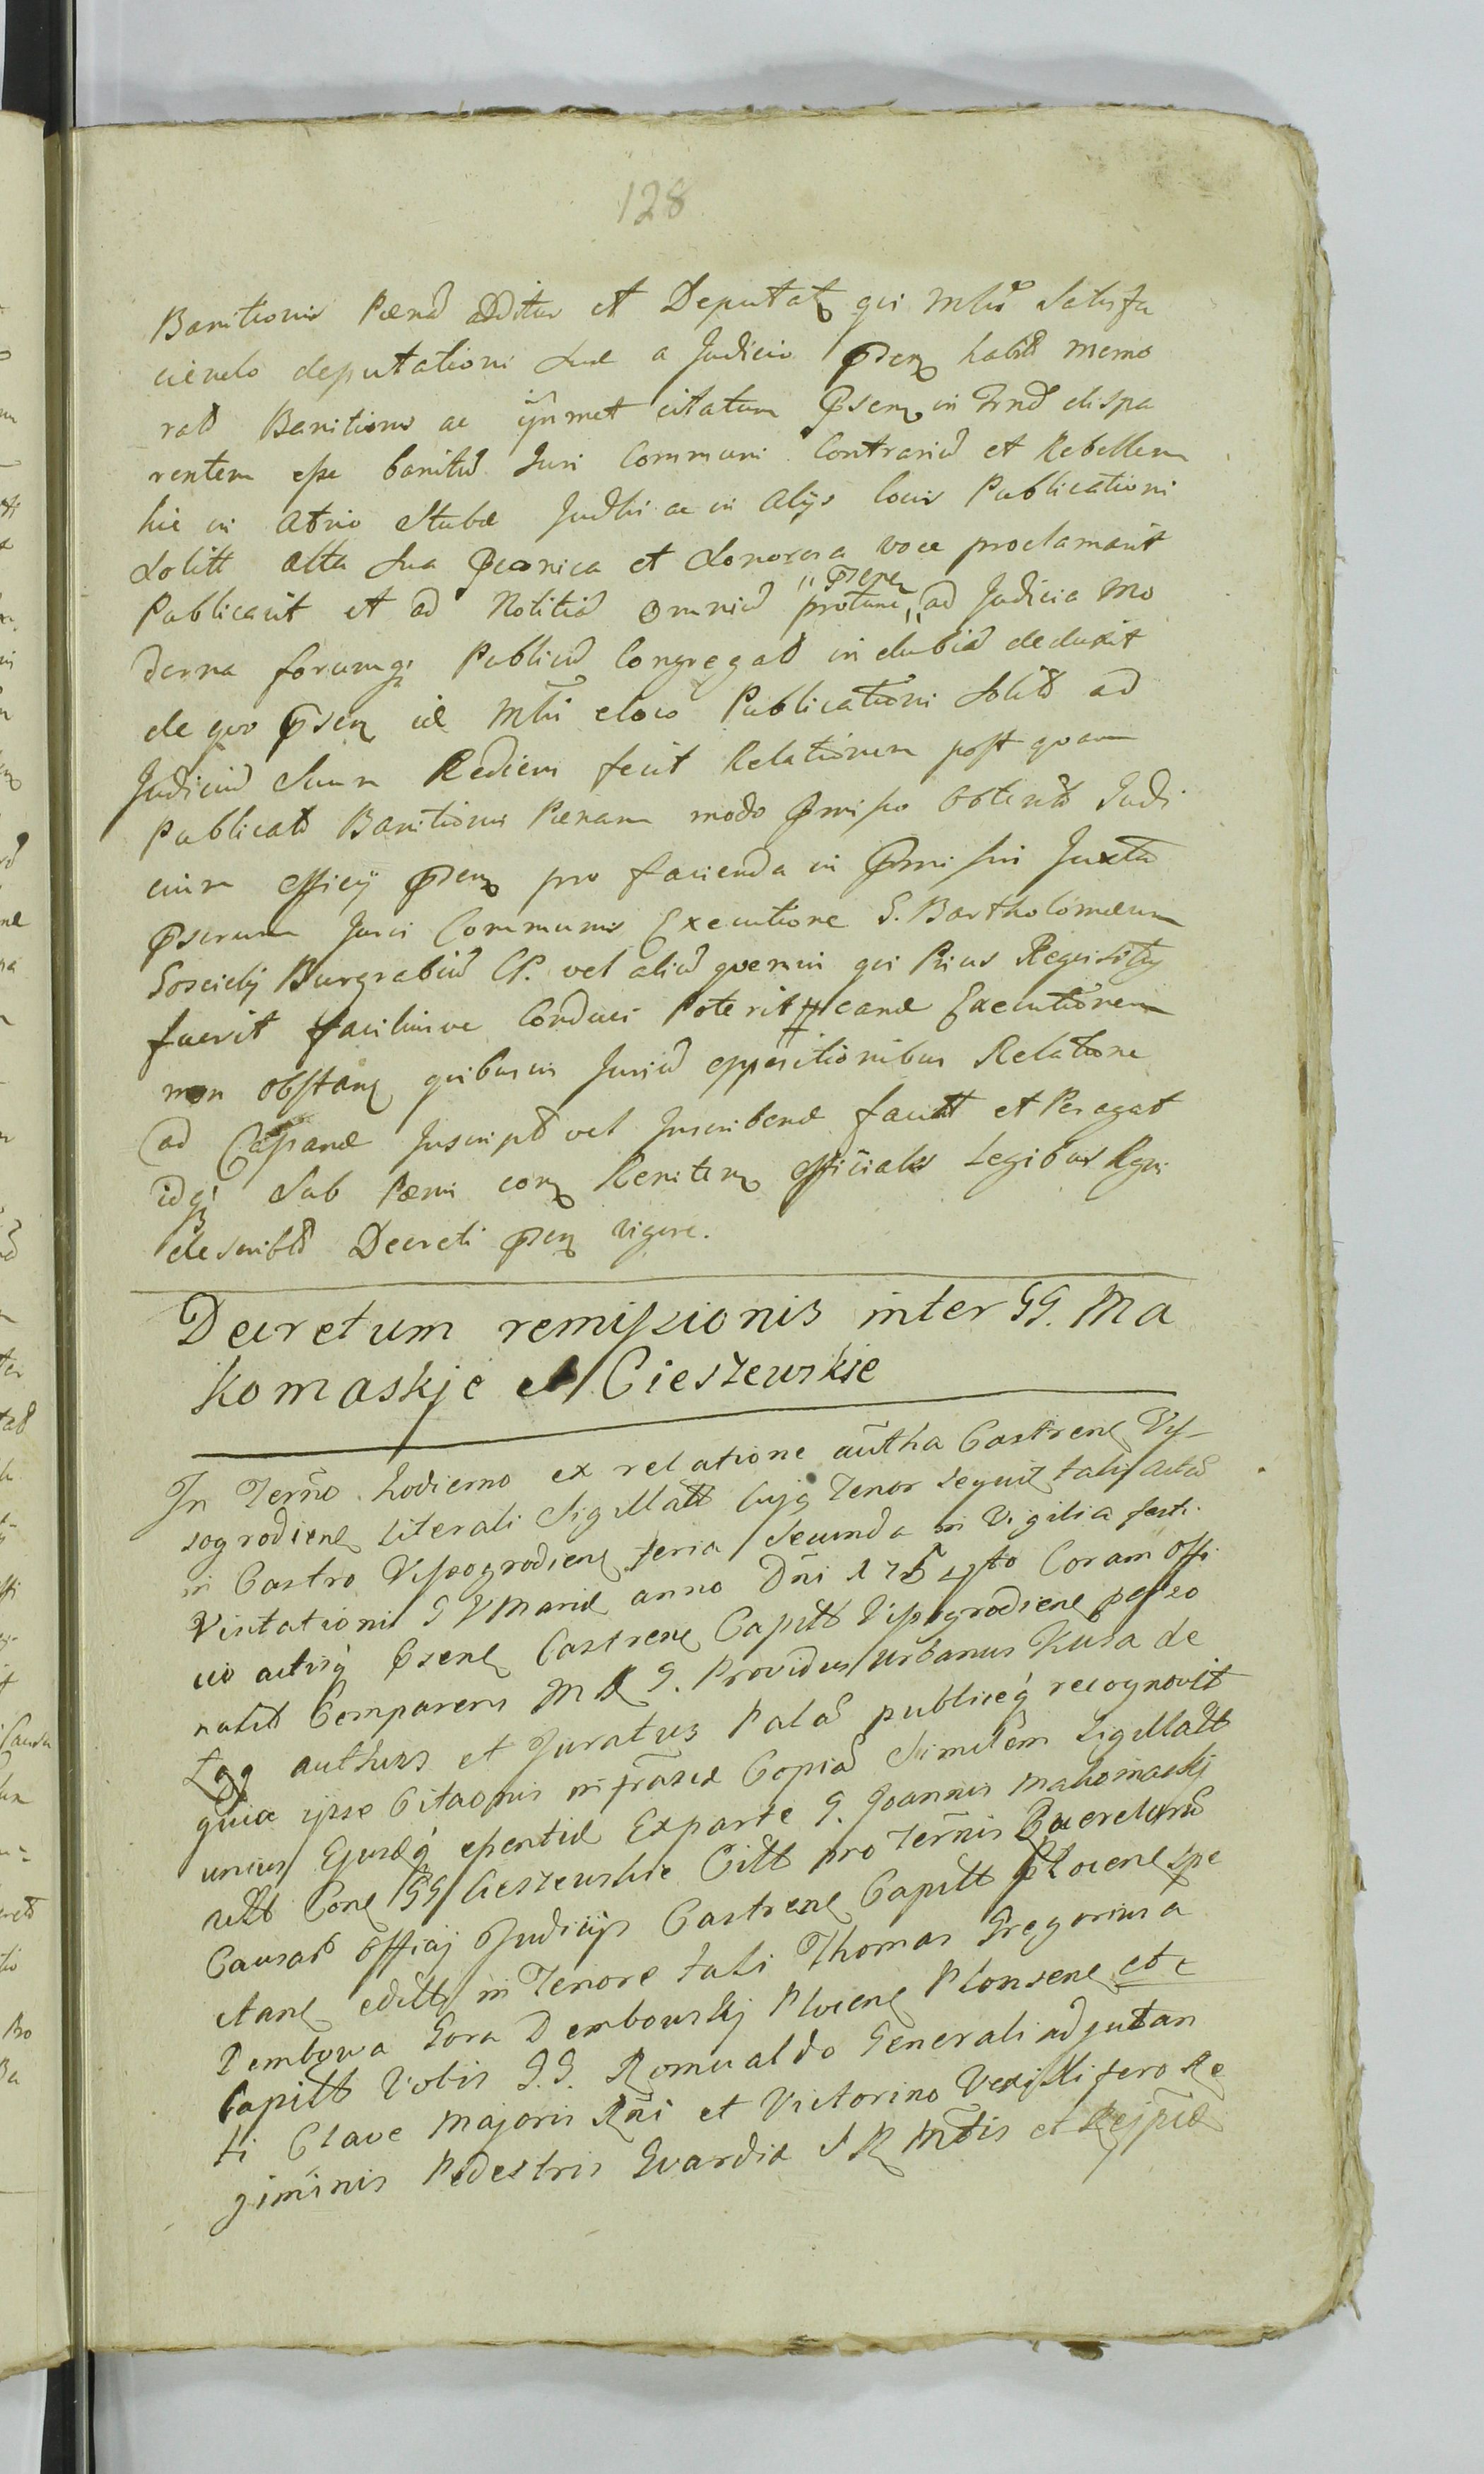 128
Banitionis Pœnã additur et Deputatꝫ qui Mlis Satisfa
ciendo deputationi suæ a Judicio Psenꝫ habit memo
rat Banitionis ac citatum Psenꝫ in Trno dispa
rentem esse banitũ Juri Communi Contrariũ et Rebellem
hic in Atrio Stubæ Judlis ac in Alijs locis Publicationi
Solitt alta Sua et Sonorosa voce proclamavit
Publicavit et ad Notitiã Omniũ protunc „Psenꝫ„ ad Judicia Mo
derna forumqꝫ Publicũ Congregat in dubiã deduxit
de quo Psenꝫ Mlis eloco Publicationi Solit ad
Judiciũ Suum Rediens fecit Relationem post quam
Publicat Banitionis Pœnam modo Pmisso Obtent Judi
cium Officij Psenꝫ pro facienda in Pmissis Juxta
Pscrum Juris Communis Executione G. Bartholomæum
Goscicky Burgrabiũ CP. vel aliũ quemvis qui Prius Requisitꝫ
fuerit faciliusve Conduci Poterit Executionem
non Obstanꝫ quibusvis Juriũ oppositionibus Relatione
ad Inscript vel Inscribend faciat et Peragat
idqꝫ Sub Pœnis conꝫ Renitenꝫ Officiales Legibus Regni
descriptt Decreti Psenꝫ vigore.
Decretum remissionis inter GG. Ma
komaskje et Cieszewskie
In Termo hodierno ex relatione autha Castrenꝫ Vys-
sogrodienꝫ Literali Sigillatt Cujꝫ Tenor Sequit talis Actũ
in Castro Vissogrodienꝫ feria Secunda in Vigilia festi
Visitationis G V Mariæ anno Dñi 1754to Coram Offi
cio actisqꝫ Psenꝫ Castrenꝫ Capitt Vissogrodienꝫ perso
nalit Comparens M R G. Providus Urbanus Kusa de
authus et Juratus Palã publiceqꝫ recognovit
quia ipse Citaonis infrascæ Copiã Similem Sigillatt
unius Ejusdqꝫ essentiæ Exparte G. Joannis Makomaski
Conꝫ GG Cieszewskie Citt pro Termis Querelarũ
Causar Officij Judicijs Castrenꝫ Capitt Plocenꝫ spe
ctanꝫ editt in Tenore tali Thomas Gregorius a
Dembowa Gora Dembowskj Plocenꝫ Plonsenꝫ etc
Capitt Vobis G.G. Romualdo Generali adjutan
ti Clave Majoris Rñi et Victorino Vexillifero Re
giminis Pedestris Gvardiæ S R Mtis et Reipcæ